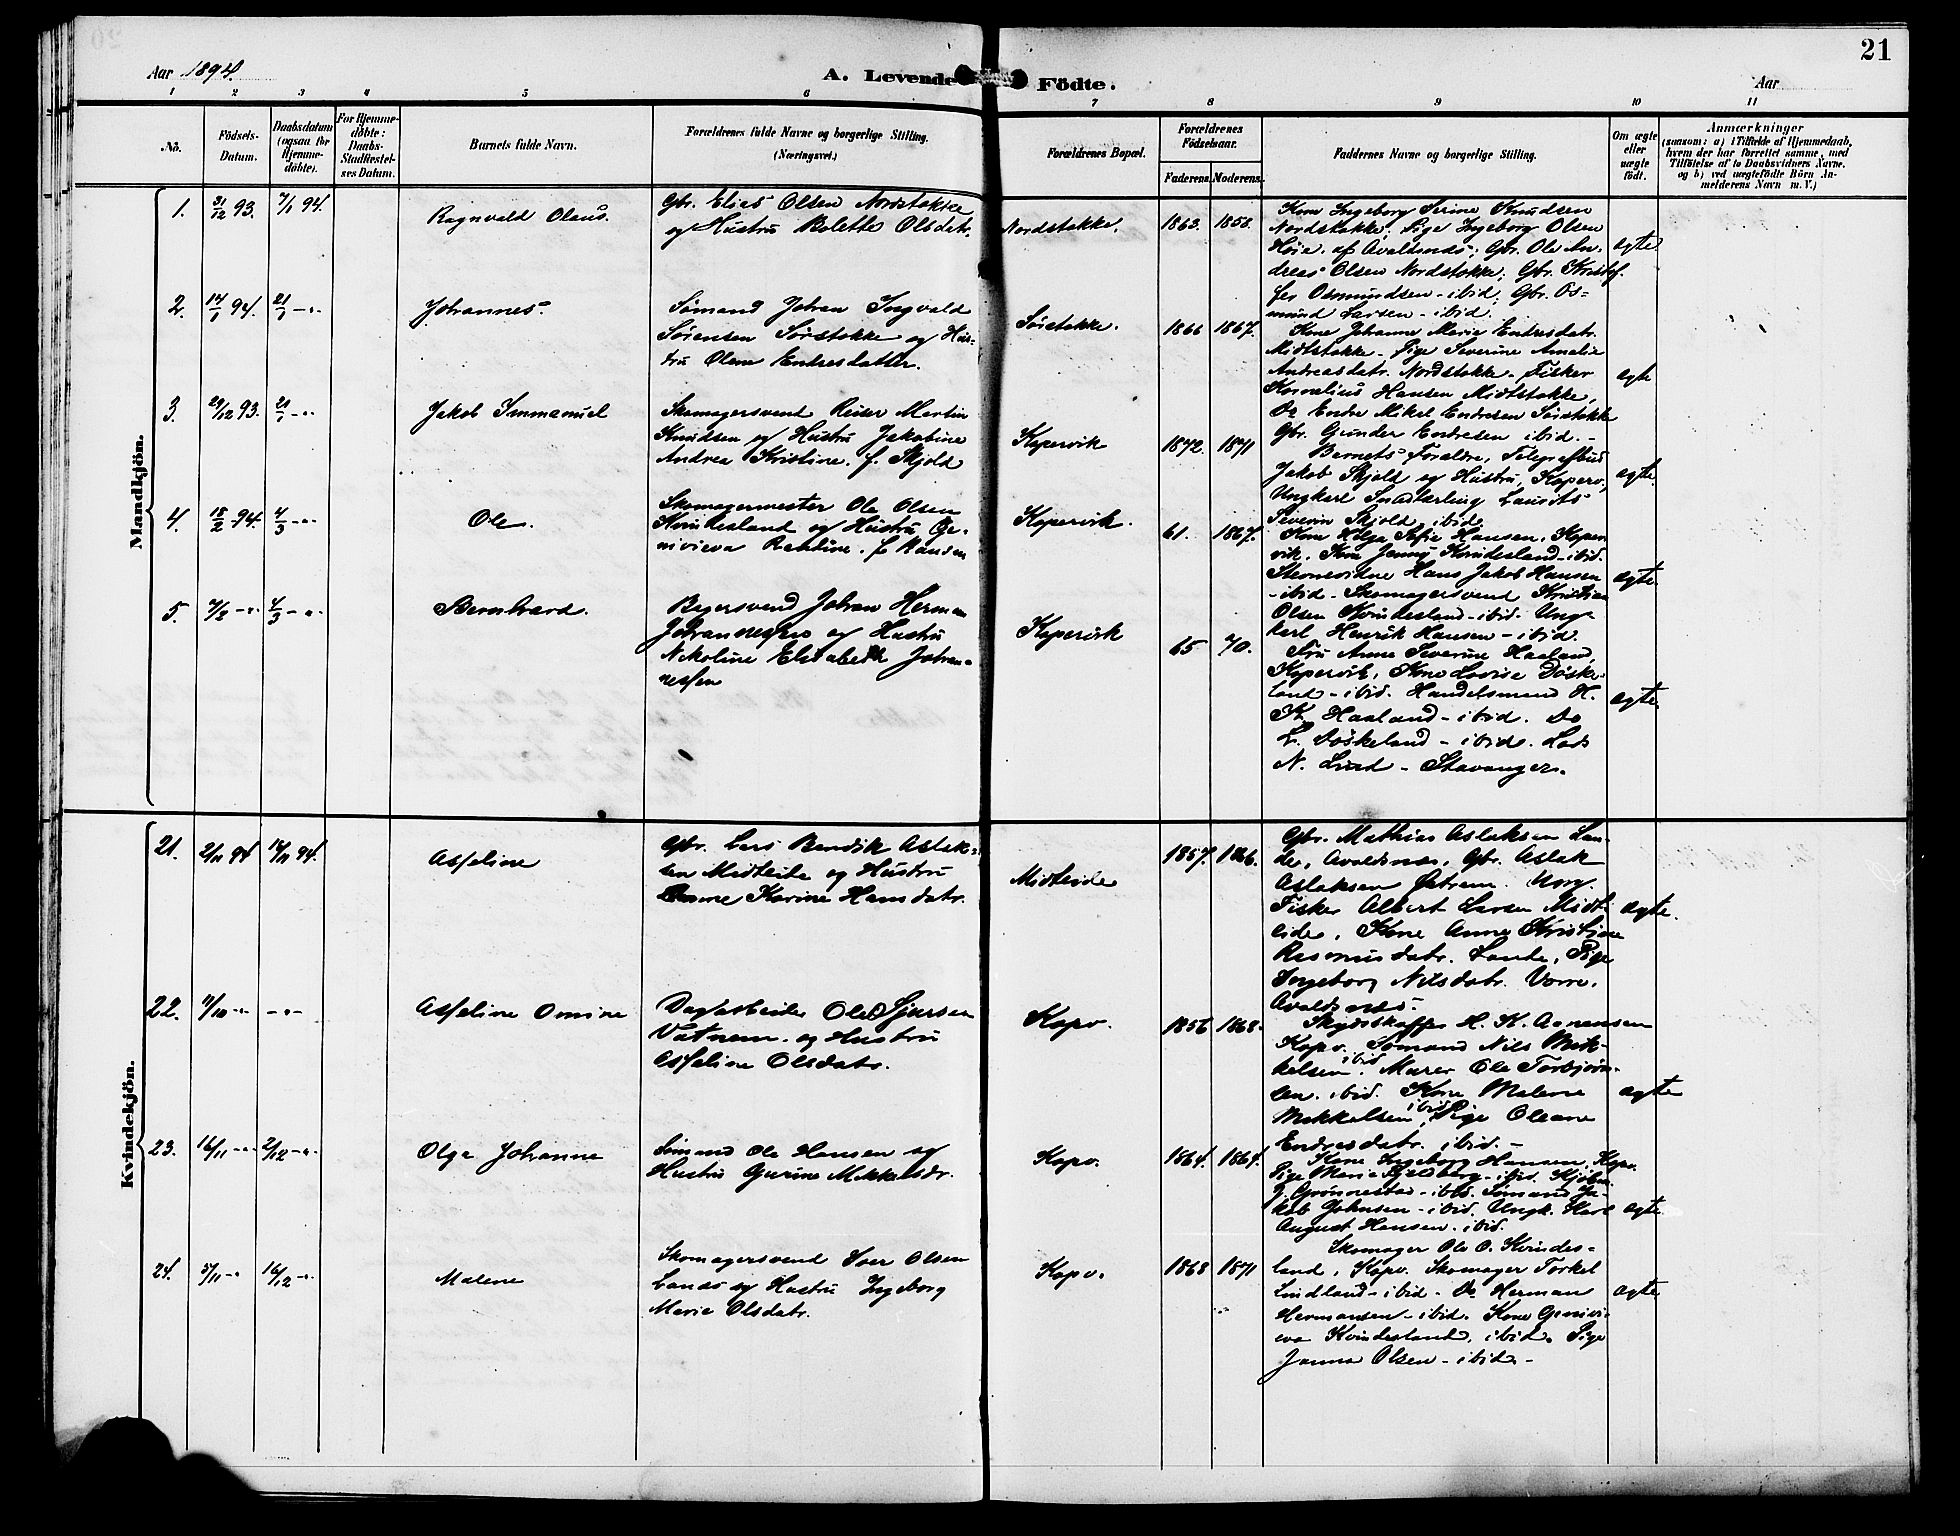 21
Aar 1894.
A. Levende Födte.
Aar
1 2 3 4 5 6 7 8 9 10 11
No.
Födsels-
Datum.
Daabsdatum
(ogsaa for
Hjemme-
döbte).
For Hjemme-
döbte:
Daabs-
Stadfæstel-
ses Datum.
Barnets fulde Navn.
Forældrenes fulde Navne og borgerlige Stilling.
(Næringsvei.)
Forældrenes Bopæl.
Forældrenes
Födselsaar.
Faderens. Moderens.
Faddernes Navne og borgerlige Stilling.
Om ægte
eller
uægte
født.
Anmærkninger
(saasom: a) i Tilfælde af Hjemmedaab,
hvem der har forrettet samme, med
Tilföielse af to Daabsvidners Navne,
og b) ved uægtefödte Börn An-
melderens Navn m. V.)
Mandkjön.
1. 31/12 93. 7/1 94.
Ragnvald Olaus.
Gbr. Elias Olsen Nordstokke
og Hustru Bolette Olsdatr.
Nordstokke.
1863. 1858.
Kone Ingeborg Serine Knudsen
Nordstokke, Pige Ingeborg Olsen
Høie af Avaldsnes; Gbr. Ole An-
dreas Olsen Nordstokke; Gbr. Kristof-
fer Osmundsen - ibid; Gbr. Os-
mund Larsen - ibid.
ægte
2. 14/1 94. 21/1 - "
Johannes.
Sømand Johan Ingvald
Sørensen Sørstokke og Hus-
tru Olene Endresdatter.
Sørstokke.
1866 1867.
Kone Johanne Marie Endresdatr.
Midtstokke - Pige Severine Amalie
Andreasdatr. Nordstokke - Fisker
Kornelius Hansen Midtstokke,
Do Endre Mikal Endresen Sørstokke
Gbr. Gunder Endresen ibid. -
ægte
3. 29/12 93. 21/1 - "
Jakob Immanuel
Skomagersvend Reier Martin
Knudsen og Hustru Jakobine
Andrea Kristine. f. Skjold
Kopervik
1872. 1871
Barnets Forældre, Telegrafbud
Jakob Skjold og Hustru, Koperv.,
Ungkarl Snedkerlærling Laurits
Severin Skjold, ibid.
ægte.
4. 18/2 - 94. 4/3 - "
Ole.
Skomagermester Ole Olsen
Kvindesland og Hustru Ge-
nivieva Bertine. f. Hansen
Kopervik.
61. 1867.
Kone Helga Sofie Hansen, Koper-
vik, Kone Jenny Kvindesland - ibid.
Stevnevidne Hans Jakob Hansen
- ibid - Skomagersvend Kristian
Olsen Kvindesland - ibid. Ung-
karl Henrik Hansen - ibid.
ægte
5. 7/2 - " 4/3 - "
Bernhard.
Bagersvend Johan Herman
Johannessen og Hustru
Nikoline Elisabeth Johan-
nessen
Kopervik
65 70.
Fru Anne Severine Haaland
Kopervik, Kone Lovise Døske-
land - ibid. Handelsmand H.
K. Haaland - ibid. Do
L. Døskeland - ibid. Lods
N. Lund - Stavanger.
ægte.
Kvindekjön.
21. 2/11 94 18/11 94.
Asseline
Gbr. Lars Bendik Aslak-
sen Midteide og Hustru
Anne Karine Hansdatr.
Midteide
1857. 1866.
Gbr. Mathias Aslaksen Lan-
de, Avaldsnes, Gbr. Aslak
Aslaksen Østrem. Ung.
Fisker Albert Larsen Midt-
eide, Kone Anne Kristine
Rasmusdatr. Lande, Pige
Ingeborg Nilsdatr. Vorre,
Avaldsnes.
ægte.
22. 11/10 - " - " -
Asseline Omine
Dagarbeider Ole Sjursen
Vatnem. og Hustru
Asseline Olsdatr.
Kopv.
1856 1868.
Skydsskaffer H. K. Aanensen
Kopv. Sømand Nils Mik-
kelsen ibid. Murer Ole Torbjørn-
sen. ibid. Kone Malene
Mikkelsen, ibid Pige Oleane
Endresdatr. ibid. -
ægte
23. 16/11 - " 2/12 - "
Olga Johanne
Sømand Ole Hansen og
Hustru Gurine Mikkelsdr.
Kopv.
1864. 1864.
Kone Ingeborg Hansen, Kopv.
Pige Marie Fjeldberg - ibid. Kjøbm.
J. Grønnestad - ibid. Sømand Ja-
kob Johnsen - ibid. Ungk. Karl
August Hansen. ibid.
ægte
24. 5/11 - " 16/12 - "
Malene
Skomagersvend Iver Olsen
Lande og Hustru Ingeborg
Marie Olsdatr.
Kopv.
1868 1871
Skomager Ole O. Kvindes-
land, Kopv. Skomager Torkel
Lindland - ibid - Do Herman
Hermansen - ibid. Kone Genivi-
eva Kvindesland, ibid. Pige
Janna Olsen - ibid -
ægte